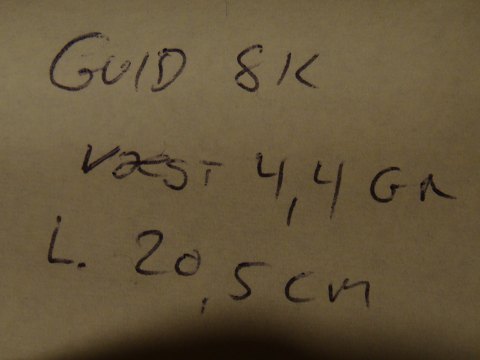 GUlD 8K
Væst 4,4 GR
L. 20,5 cm